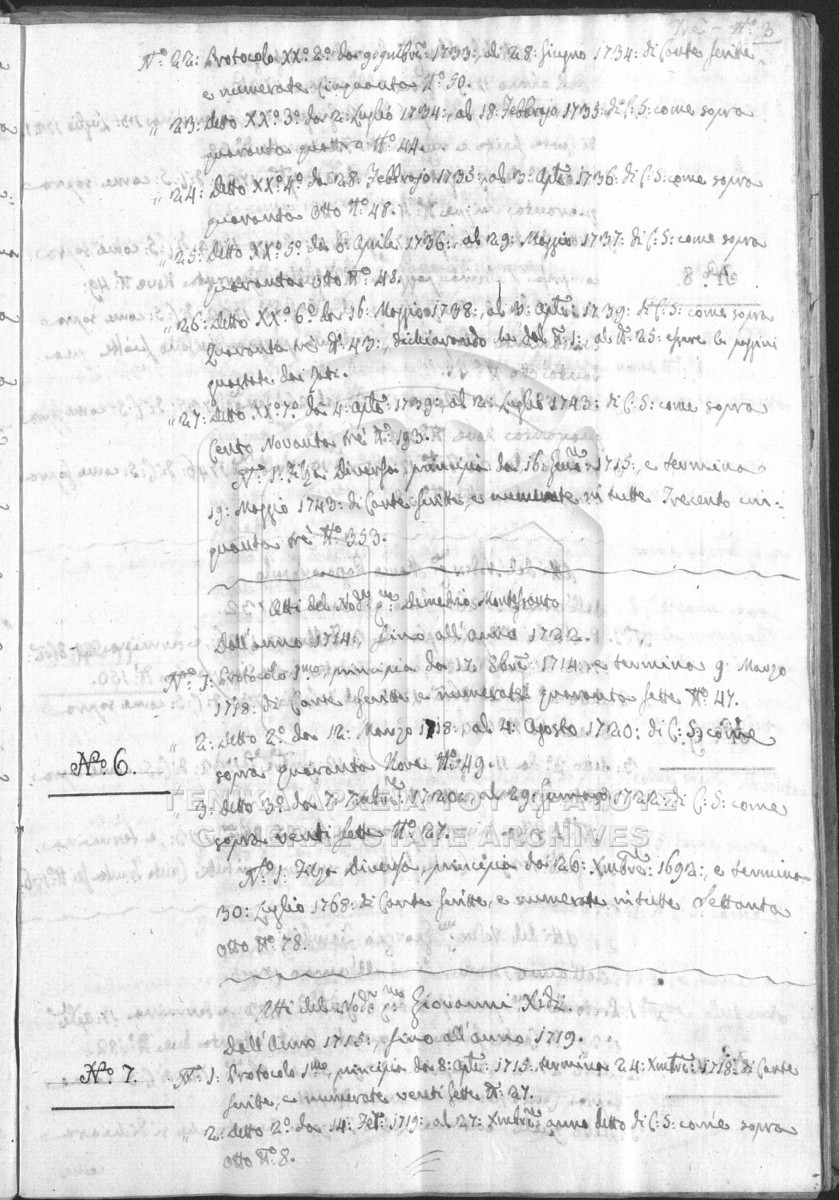 Tre - N.º 3
Nº: 22: Protocolo XXº: 2º da 9: 9mbre: 1733:, al 28: Giugno 1734: di Carte scritte,
e numerate Cinquanta Nº 50.
" 23: detto XXº: 3º da 2: Luglio 1734:, al 18: Febbrajo 1735: di C: S: come sopra
quaranta quattro Nº: 44.
" 24: detto XXº: 4º: da 28: Febbrajo: 1735:, al 3: Aple: 1736: di C: S: come sopra
quaranta Otto Nº: 48.
" 25: detto XXº: 5º: da 8: Aprile 1736:, al 29: Maggio 1737: di C: S: come sopra
quaranta otto Nº: 48.
" 26: detto XXº: 6º: da 16: Maggio 1738:, al 3: Aple: 1739: di C: S: come sopra
Quaranta trè Nº: 43:, dichiarando che dal Nº: 1:, al Nº: 25: essere
guastate dai
" 27: detto XXº: 7º: da 4: Aple: 1739:, al 12: Luglio 1743: di C: S: come sopra
Cento Novanta trè Nº: 193.
Nº: 1: Filza Diversa, principia da 16: Genº: 1715:, e termina
19: Maggio 1743: di Carte scritte, e numerate in tutte Trecento cin-
quanta trè Nº: 353.
Atti del Nodº qm Demetrio Montesanto
Dall'anno 1714:, fino all'anno 1722.
Nº: 1: Protocolo 1mo, principia da 12: 8bre: 1714: e termina 9: Marzo
1718: di Carte scritte e numerate quaranta sette Nº: 47.
Nº 6.
" 2: detto 2º: da 12: Marzo 1718: al 4: Agosto 1720: di C: S: come
sopra quaranta Nove Nº: 49.
" 3: detto 3º: da 7: 7mbre: 1720: al 29: Gennaro 1722: di C: S: come
sopra venti sette Nº: 27.
Nº: 1: Filza Diversa, principia da 26: Xmbre: 1692:, e termina
30: Luglio 1768: di Carte scritte, e numerate in tutte Settanta
Otto Nº: 78.
Atti del Nodº qm Giovanni Xidi.
Dall'Anno 1715:, fino all'anno 1719.
Nº 7.
Nº: 1: Protocolo 1mo, principia da 8: Aple: 1715: termina 24: Xmbre: 1718: di Carte
scritte, e numerate venti sette Nº: 27.
" 2: detto 2º: da 14: Febº: 1719: al 27: Xmbre: anno detto di C: S: come sopra
Otto Nº: 8.
ΓΕΝΙΚΑ ΑΡΧΕΙΑ ΤΟΥ ΚΡΑΤΟΥΣ
GENERAL STATE ARCHIVES